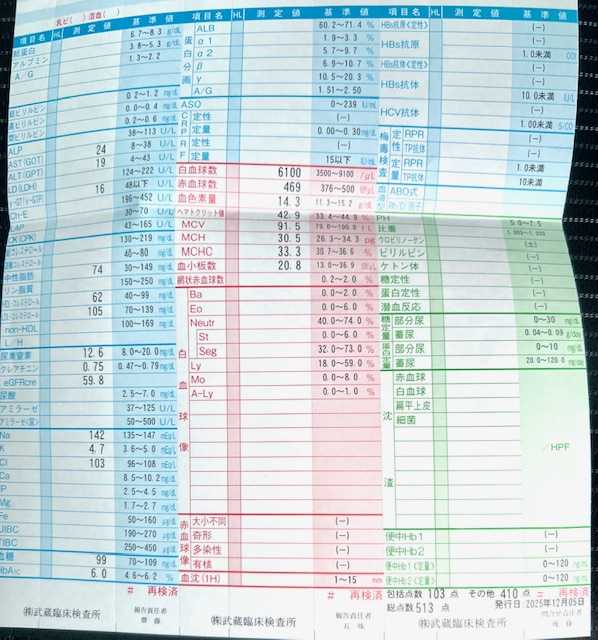 乳ビ( ) 溶血( )
項目名 HL 測定値 基準値
総蛋白 6.7~8.3 g/dL
アルブミン 3.8~5.3 g/dL
A/G 1.3~2.2
0.2~1.2 mg/dL
0.0~0.4 mg/dL
0.2~0.6 mg/dL
38~113 U/L
ALP 24 8~38 U/L
AST(GOT) 19 4~43 U/L
ALT(GPT) 124~222 U/L
LD(LDH) 16 48以下 U/L
196~452 U/L
Ch-E 30~70 U/L
LAP 43~165 U/L
CK(CPK) 130~219 mg/dL
40~80 mg/dL
中性脂肪 74 30~149 mg/dL
リン脂質 150~250 mg/dL
62 40~99 mg/dL
105 70~139 mg/dL
non-HDL 100~169 mg/dL
L/H
尿素窒素 12.6 8.0~20.0 mg/dL
クレアチニン 0.75 0.47~0.79 mg/dL
eGFRcre 59.8
尿酸 2.5~7.0 mg/dL
アミラーゼ 37~125 U/L
アミラーゼ(尿) 50~500 U/L
Na 142 135~147 mEq/L
K 4.7 3.6~5.0 mEq/L
Cl 103 96~108 mEq/L
Ca 8.5~10.2 mg/dL
IP 2.5~4.5 mg/dL
Mg 1.7~2.7 mg/dL
Fe 50~160 μg/dL
UIBC 190~270 μg/dL
TIBC 250~450 μg/dL
血糖 99 70~109 mg/dL
HbA1c 6.0 4.6~6.2 %
# 再検済
㈱武蔵臨床検査所
報告責任者
齋藤
項目名 HL 測定値 基準値
蛋白分画
ALB 60.2~71.4 %
α1 1.9~3.3 %
α2 5.7~9.7 %
β 6.9~10.7 %
γ 10.5~20.3 %
A/G 1.51~2.50
ASO 0~239 U/mL
CRP 定性 (-)
定量 0.00~0.30 mg/dL
RF 定性 (-)
定量 15以下 U/mL
白血球数 6100 3500~9100 /μL
赤血球数 469 376~500
血色素量 14.3 11.3~15.2 g/dL
ヘマトクリット値 42.9 33.4~44.9 %
MCV 91.5 79.0~100.0 fL
MCH 30.5 26.3~34.3 pg
MCHC 33.3 30.7~36.6 %
血小板数 20.8 13.0~36.9
網状赤血球数 0.2~2.0 %
白血球像
Ba 0.0~2.0 %
Eo 0.0~6.0 %
Neutr 40.0~74.0 %
St 0.0~6.0 %
Seg 32.0~73.0 %
Ly 18.0~59.0 %
Mo 0.0~8.0 %
A-Ly 0.0~1.0 %
赤血球像
大小不同 (-)
奇形 (-)
多染性 (-)
有核 (-)
血沈(1H) 1~15 mm
# 再検済
㈱武蔵臨床検査所
報告責任者
項目名 HL 測定値 基準値
HBs抗原<定性> (-)
HBs抗原 1.0未満 COI
HBs抗体<定性> (-)
HBs抗体 10.0未満 U/L
HCV抗体 (-)
1.00未満 S/CO
梅毒検査
定性 RPR (-)
TP抗体 (-)
定量 RPR 1.0未満
TP抗体 10未満
血液型 ABO式
PH 5.0~7.5
比重
ウロビリノーゲン (±)
ビリルビン (-)
ケトン体 (-)
糖定性 (-)
蛋白定性 (-)
潜血反応 (-)
糖定量 部分尿 0~30 mg/dL
蓄尿 0.04~0.09 g/day
蛋白定量 部分尿 0~10 mg/dL
蓄尿 20.0~120.0 mg/day
沈渣
赤血球
白血球
扁平上皮
細菌
/HPF
便中Hb1 (-)
便中Hb2 (-)
便中Hb1<定量> 0~120 ng/mL
便中Hb2<定量> 0~120 ng/mL
包括点数 103 点 その他 410 点 # 再検済
総点数 513 点 発行日:2025年12月05日
㈱武蔵臨床検査所